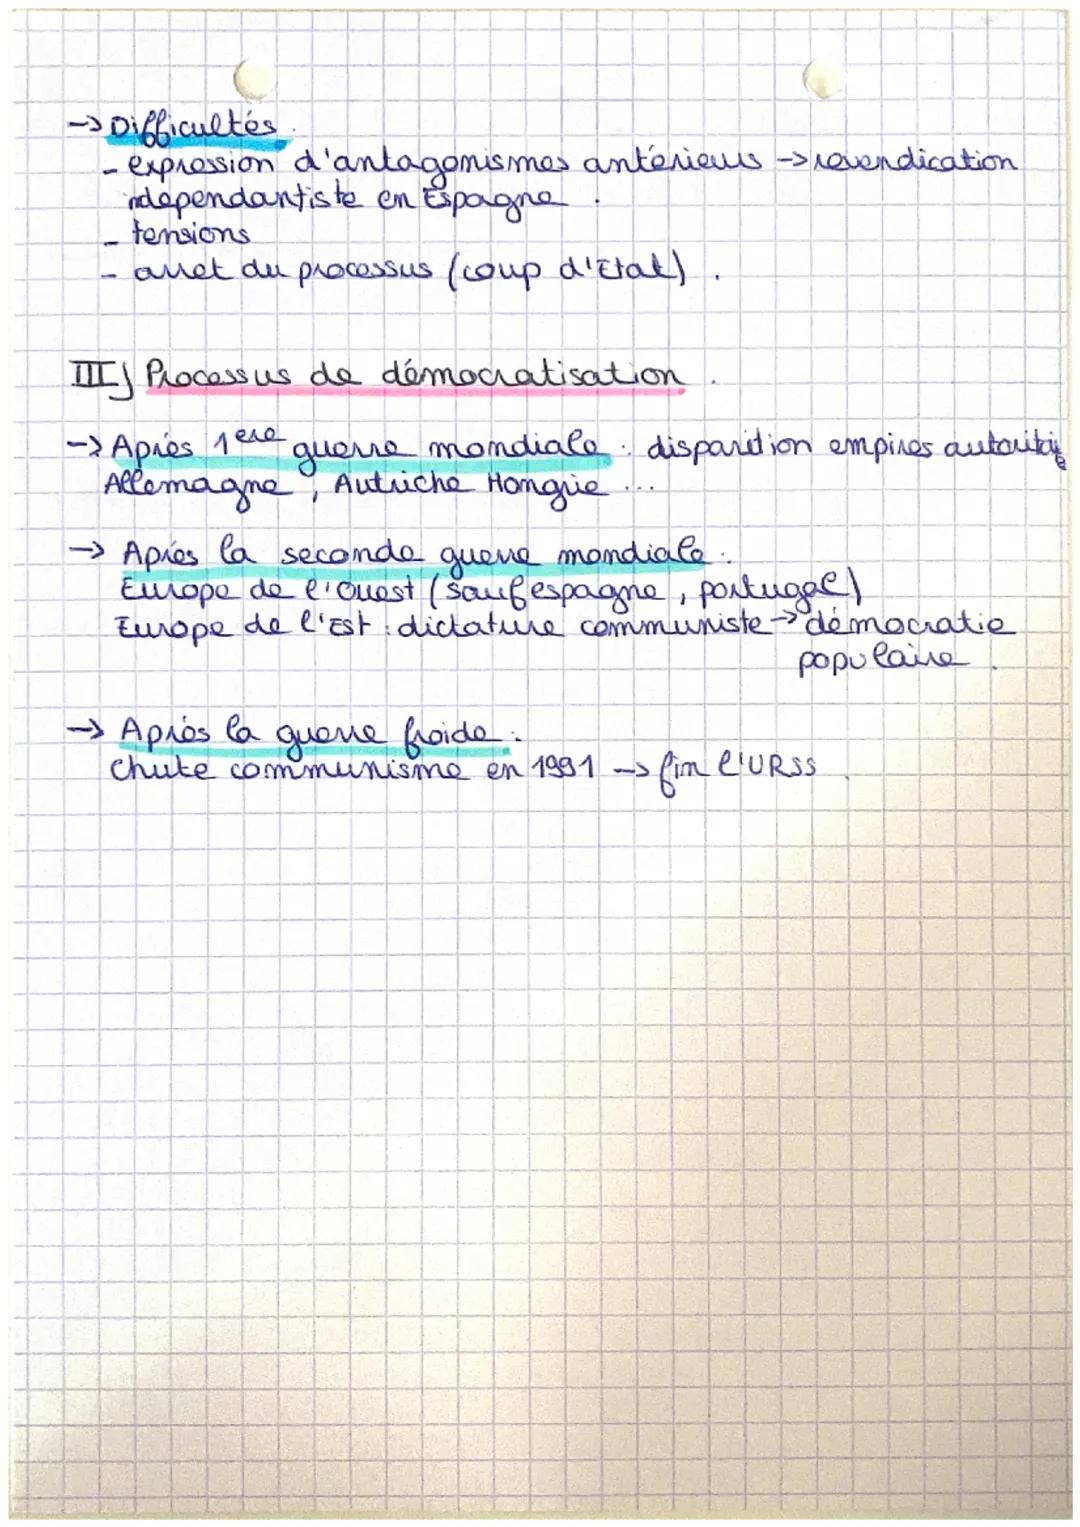 -> Difficultés.
- expression d'antagonismes antérieurs -> revendication
indépendantiste en Espagne.
- tensions
- arret du processus (coup d'Etat).
III) Processus de démocratisation.
-> Après 1ère guerre mondiale : disparition empires autoritaire
Allemagne, Autriche Hongrie ...
-> Après la seconde guerre mondiale :
Europe de l'Ouest (sauf espagne, portugal)
Europe de l'Est : dictature communiste -> démocratie
populaire.
-> Après la guerre froide :
Chute communisme en 1991 -> fin l'URSS.